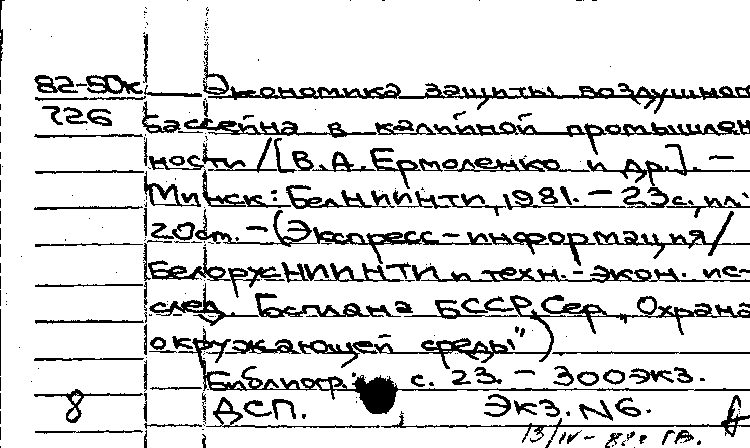 82-50к Экономика защиты воздушного
726 бассейна в калийной промышлен
ности /[В.А.Ермоленко и др.]. –
Минск: БелНИИНТИ, 1981. – 23с., ил.
20см. – (Экспресс-информация/
БелоружНИИНТИ и техн.-экон. ис-
след. Госплана БССР. Сер. „Охрана
окружающей среды")
Библиогр.: с. 23. – 300экз.
8 ДСП. Экз. N6.
13/IV-82г